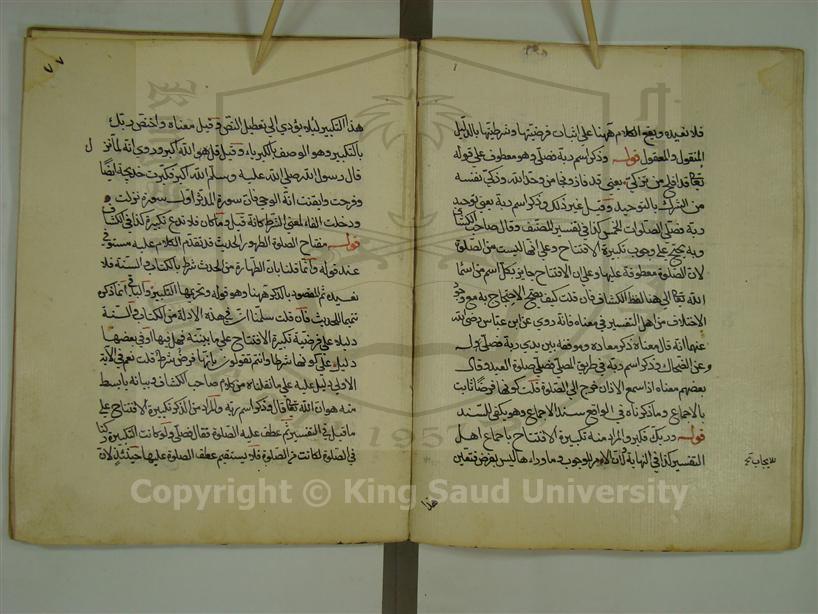 فلا نعيده ويقع الكلام ههنا على اثبات فرضيتها وشرطيتها بالدليل
المنقول والمعقول قوله وذكر اسم ربه فصلى وهو معطوف على قوله
تعالى قد افلح من تزكى يعني قد فاز ونجا من وحد الله وزكى نفسه
من الشرك بالتوحيد وقيل غير ذلك وذكر اسم ربه يعني توحيد
ربه فصلى الصلوات الخمس كذا في تفسير المصنف وقال صاحب الكشاف
وبه يحتج على وجوب تكبيرة الافتتاح وعلى انها ليست من الصلوة
لان الصلوة معطوفة عليها وعلى ان الافتتاح جايز بكل اسم من اسما
الله تعالى الى هنا لفظ الكشاف فان قلت كيف يصح الاحتجاج به مع وجود
الاختلاف من اهل التفسير في معناه فانه روي عن ابن عباس رضي الله
عنهما انه قال معناه ذكر معاده وموقفه بين يدي ربه فصلى له
وعن الضحاك وذكر اسم ربه في طريق المصلى فصلى صلوة العيد وقال
بعضهم معناه اذا سمع الاذان خرج الى الصلوة قلت كونها فرضا ثابت
بالاجماع وما ذكرناه في الواقع سند الاجماع وهو يكفي للسند
قوله وربك فكبر والمراد منه تكبيرة الافتتاح باجماع اهل
التفسير كذا في النهاية لان الامر للوجوب وما وراءها ليس بفرض فتعين
للايجاب
هذا
٧٧
هذا التكبير لئلا يؤدي الى تعطيل النص وقيل معناه واختص ربك
بالتكبير وهو الوصف بالكبرياء وقيل قل هو الله اكبر وروي انه لما نزل
قال رسول الله صلى الله عليه وسلم الله اكبر فكبرت خديجة ايضا
وفرحت وايقنت انه الوحي فان سورة المدثر اول سورة نزلت
ودخلت الفاء لمعنى الشرط كانه قيل وما كان فلا تدع تكبيره كذا في الكشاف
قوله مفتاح الصلوة الطهور الحديث قد تقدم الكلام عليه مستوفى
عند قوله وانما قلنا بان الطهارة من الحدث شرط بالكتاب والسنة فلا
نعيده ثم المقصود بالذكر ههنا وهو قوله وتحريمها التكبير والباقي انما ذكر
تتميما للحديث فان قلت سلمنا ان في هذه الادلة من الكتاب والسنة
دليلا على فرضية تكبيرة الافتتاح على ما بينته فهل فيها او في بعضها
دليل على كونها شرطا وانتم تقولون بانها فرض شرط قلت نعم في الآية
الاولى دليل عليه على ما نقلناه من كلام صاحب الكشاف وبيانه بابسط
منه هو ان الله تعالى قال وذكر اسم ربه والمراد من الذكر تكبيرة الافتتاح على
ما قيل في التفسير ثم عطف عليه الصلوة فقال فصلى ولو كانت التكبيرة ركنا
في الصلوة لكانت من الصلوة فلا يستقيم عطف الصلوة عليها حينئذ لان
Copyright © King Saud University
1957